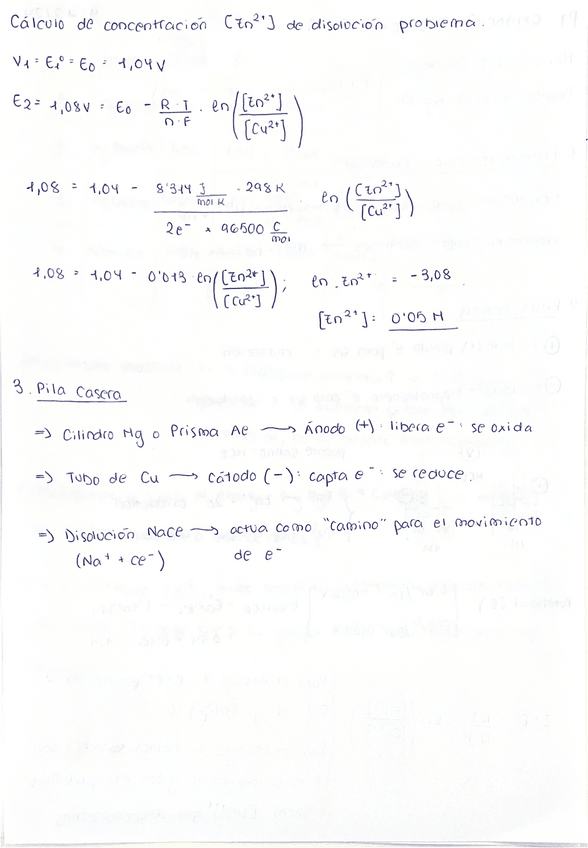 Cálculo de concentración [Zn²⁺] de disolución problema.
V1 = E1° = E0 = 1,04 V
E2 = 1,08 V = E0 - R·T / n·F · ln ([Zn²⁺] / [Cu²⁺])
1,08 = 1,04 - 8'314 J/mol K · 298 K / 2e⁻ × 96500 C/mol ln ([Zn²⁺] / [Cu²⁺])
1,08 = 1,04 - 0'013 ln ([Zn²⁺] / [Cu²⁺]) ; ln · Zn²⁺ = -3,08
[Zn²⁺] : 0'05 M
3. Pila Casera
=> Cilindro Mg o Prisma Al → Ánodo (+) : libera e⁻ : se oxida
=> Tubo de Cu → Cátodo (-) : capta e⁻ : se reduce.
=> Disolución NaCl → actua como "camino" para el movimiento
(Na⁺ + Cl⁻) de e⁻